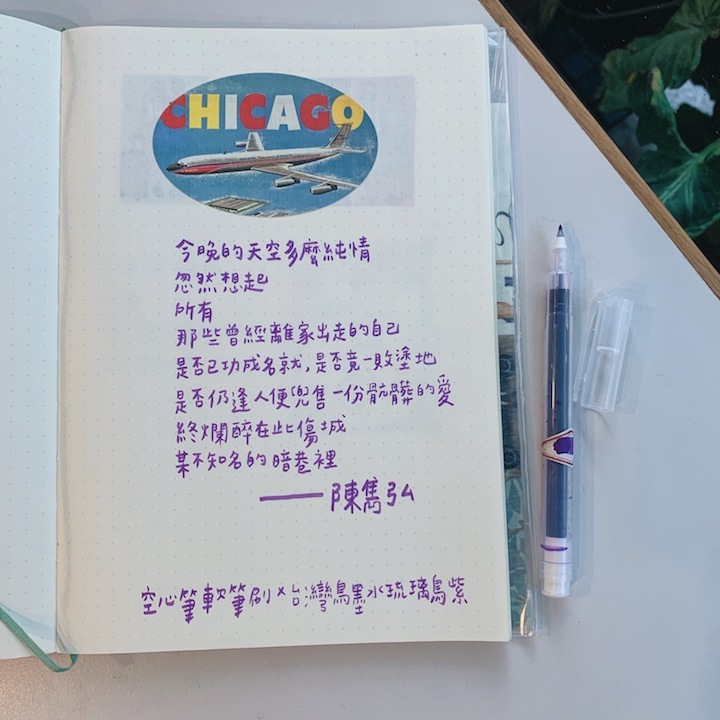 CHICAGO
今晚的天空多麼純情
忽然想起
所有
那些曾經離家出走的自己
是否已功成名就，是否竟一敗塗地
是否仍逢人便兜售一份骯髒的愛
終爛醉在此傷城
某不知名的暗巷裡
——陳雋弘
空心筆軟筆刷×台灣鳥墨水琉璃鳥紫